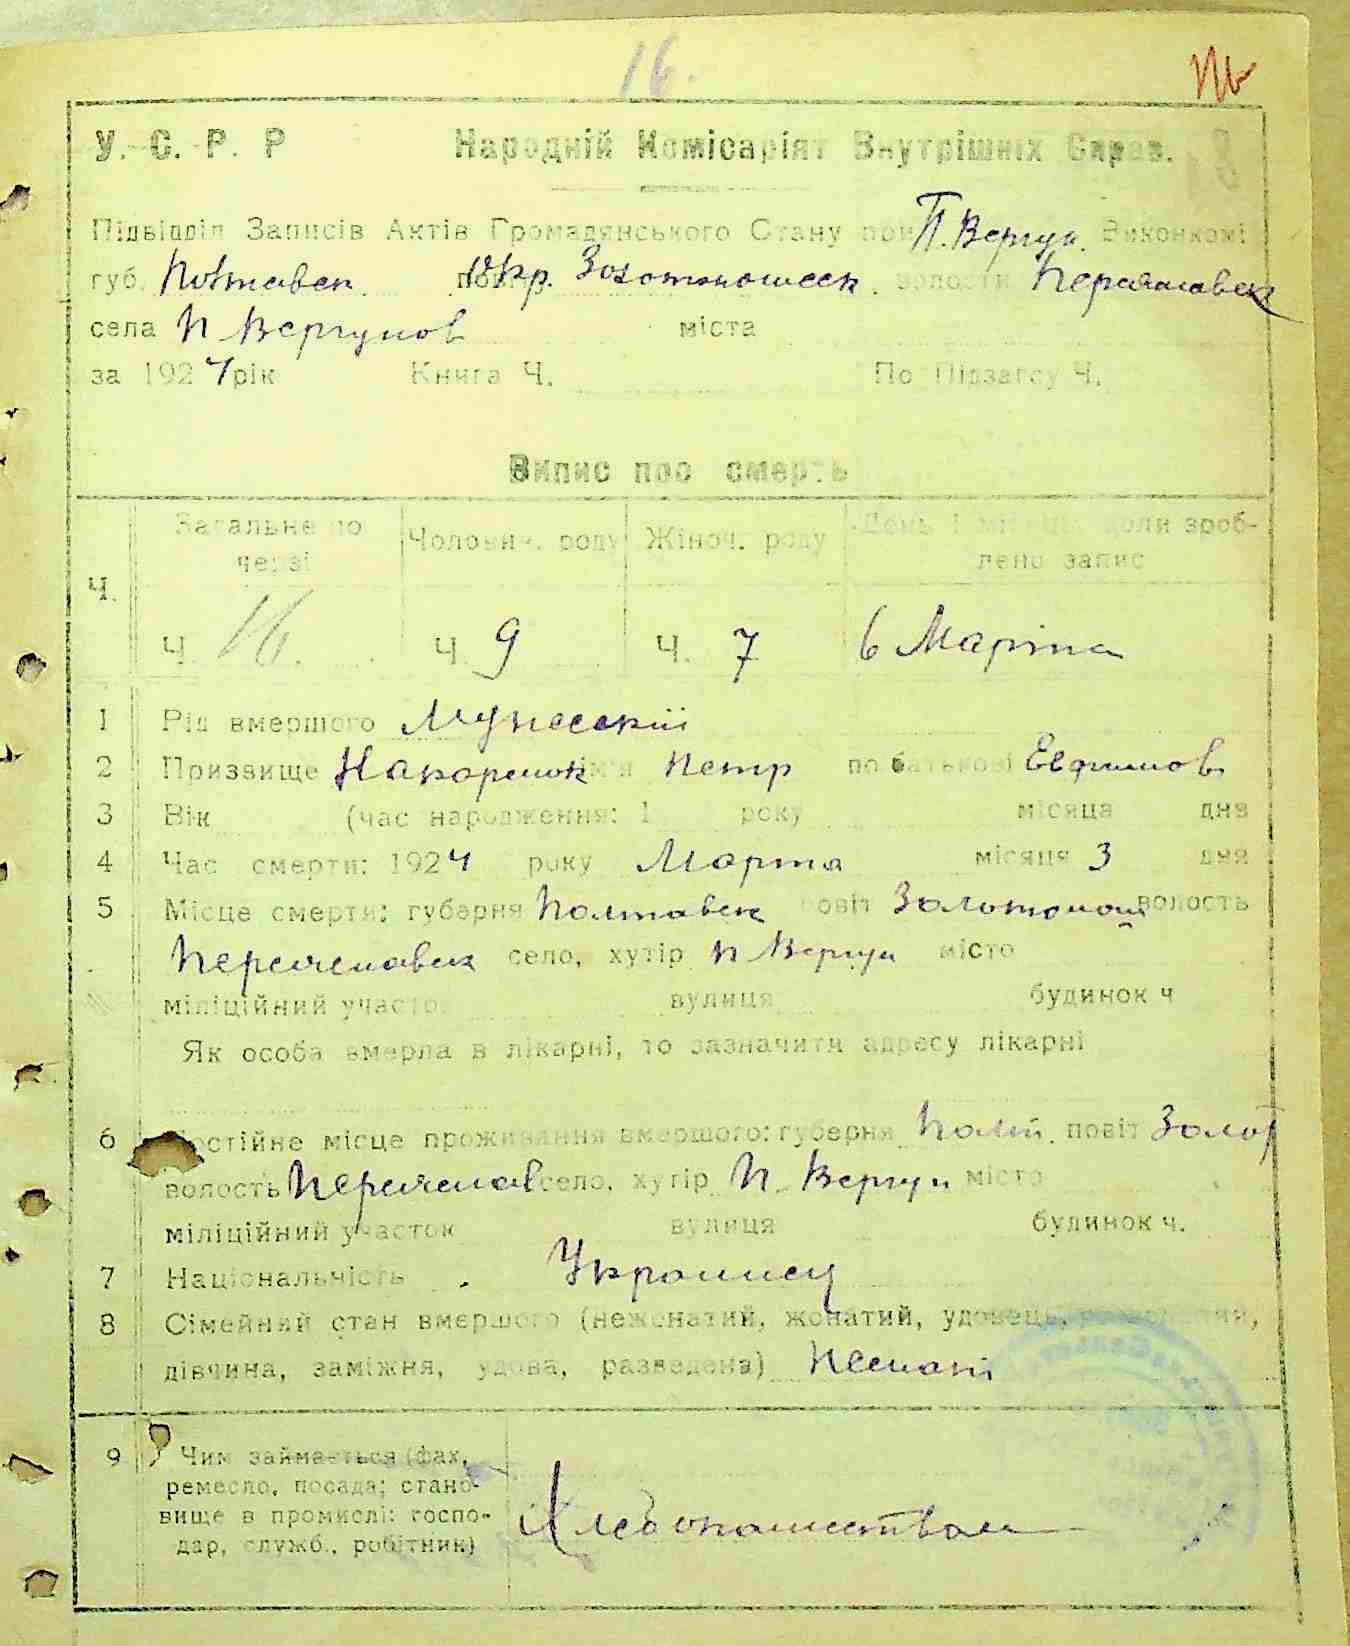 16.
У. С. Р. Р Народній Комісаріят Внутрішніх Справ.
Підвідділ Записів Актів Громадянського Стану при П. Вергун. Виконкомі
губ. Полтавск окр. Золотоношеск. волости Переяславск
села П Вергунов міста
за 1924 рік Книга Ч. По Підзагсу Ч.
Випис про смерть
Ч. Загальне по черзі Чоловіч. роду Жіноч. роду День і місяць, коли зроблено запис
Ч. 16. Ч. 9 Ч. 7 6 Марта
1 Рід вмершого Мужеский
2 Призвище ім'я Петр по батькові Евфимов
3 Вік (час народження: 1 року місяца дня
4 Час смерти: 1924 року Марта місяця 3 дня
5 Місце смерти: губерня Полтавск повіт Золотонош волость
Переяславск село, хутір П Вергун місто
міліційний участок вулиця будинок ч
Як особа вмерла в лікарні, то зазначити адресу лікарні
6 Постійне місце проживання вмершого: губерня Полт. повіт Золот
волость Переяслав село, хутір П. Вергун місто
міліційний участок вулиця будинок ч.
7 Національність Украинец
8 Сімейний стан вмершого (неженатий, жонатий, удовець, розведений,
дівчина, заміжня, удова, разведена)
9 Чим займається (фах,
ремесло, посада; стано-
вище в промислі: госпо-
дар, служб., робітник) Хлебопашеством